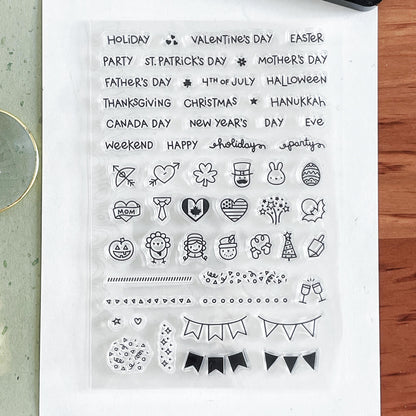 HOLIDAY VALENTINE'S DAY EASTER
PARTY ST. PATRICK'S DAY MOTHER'S DAY
FATHER'S DAY 4TH OF JULY HALLOWEEN
THANKSGIVING CHRISTMAS HANUKKAH
CANADA DAY NEW YEAR'S DAY EVE
WEEKEND HAPPY holidays party
MOM